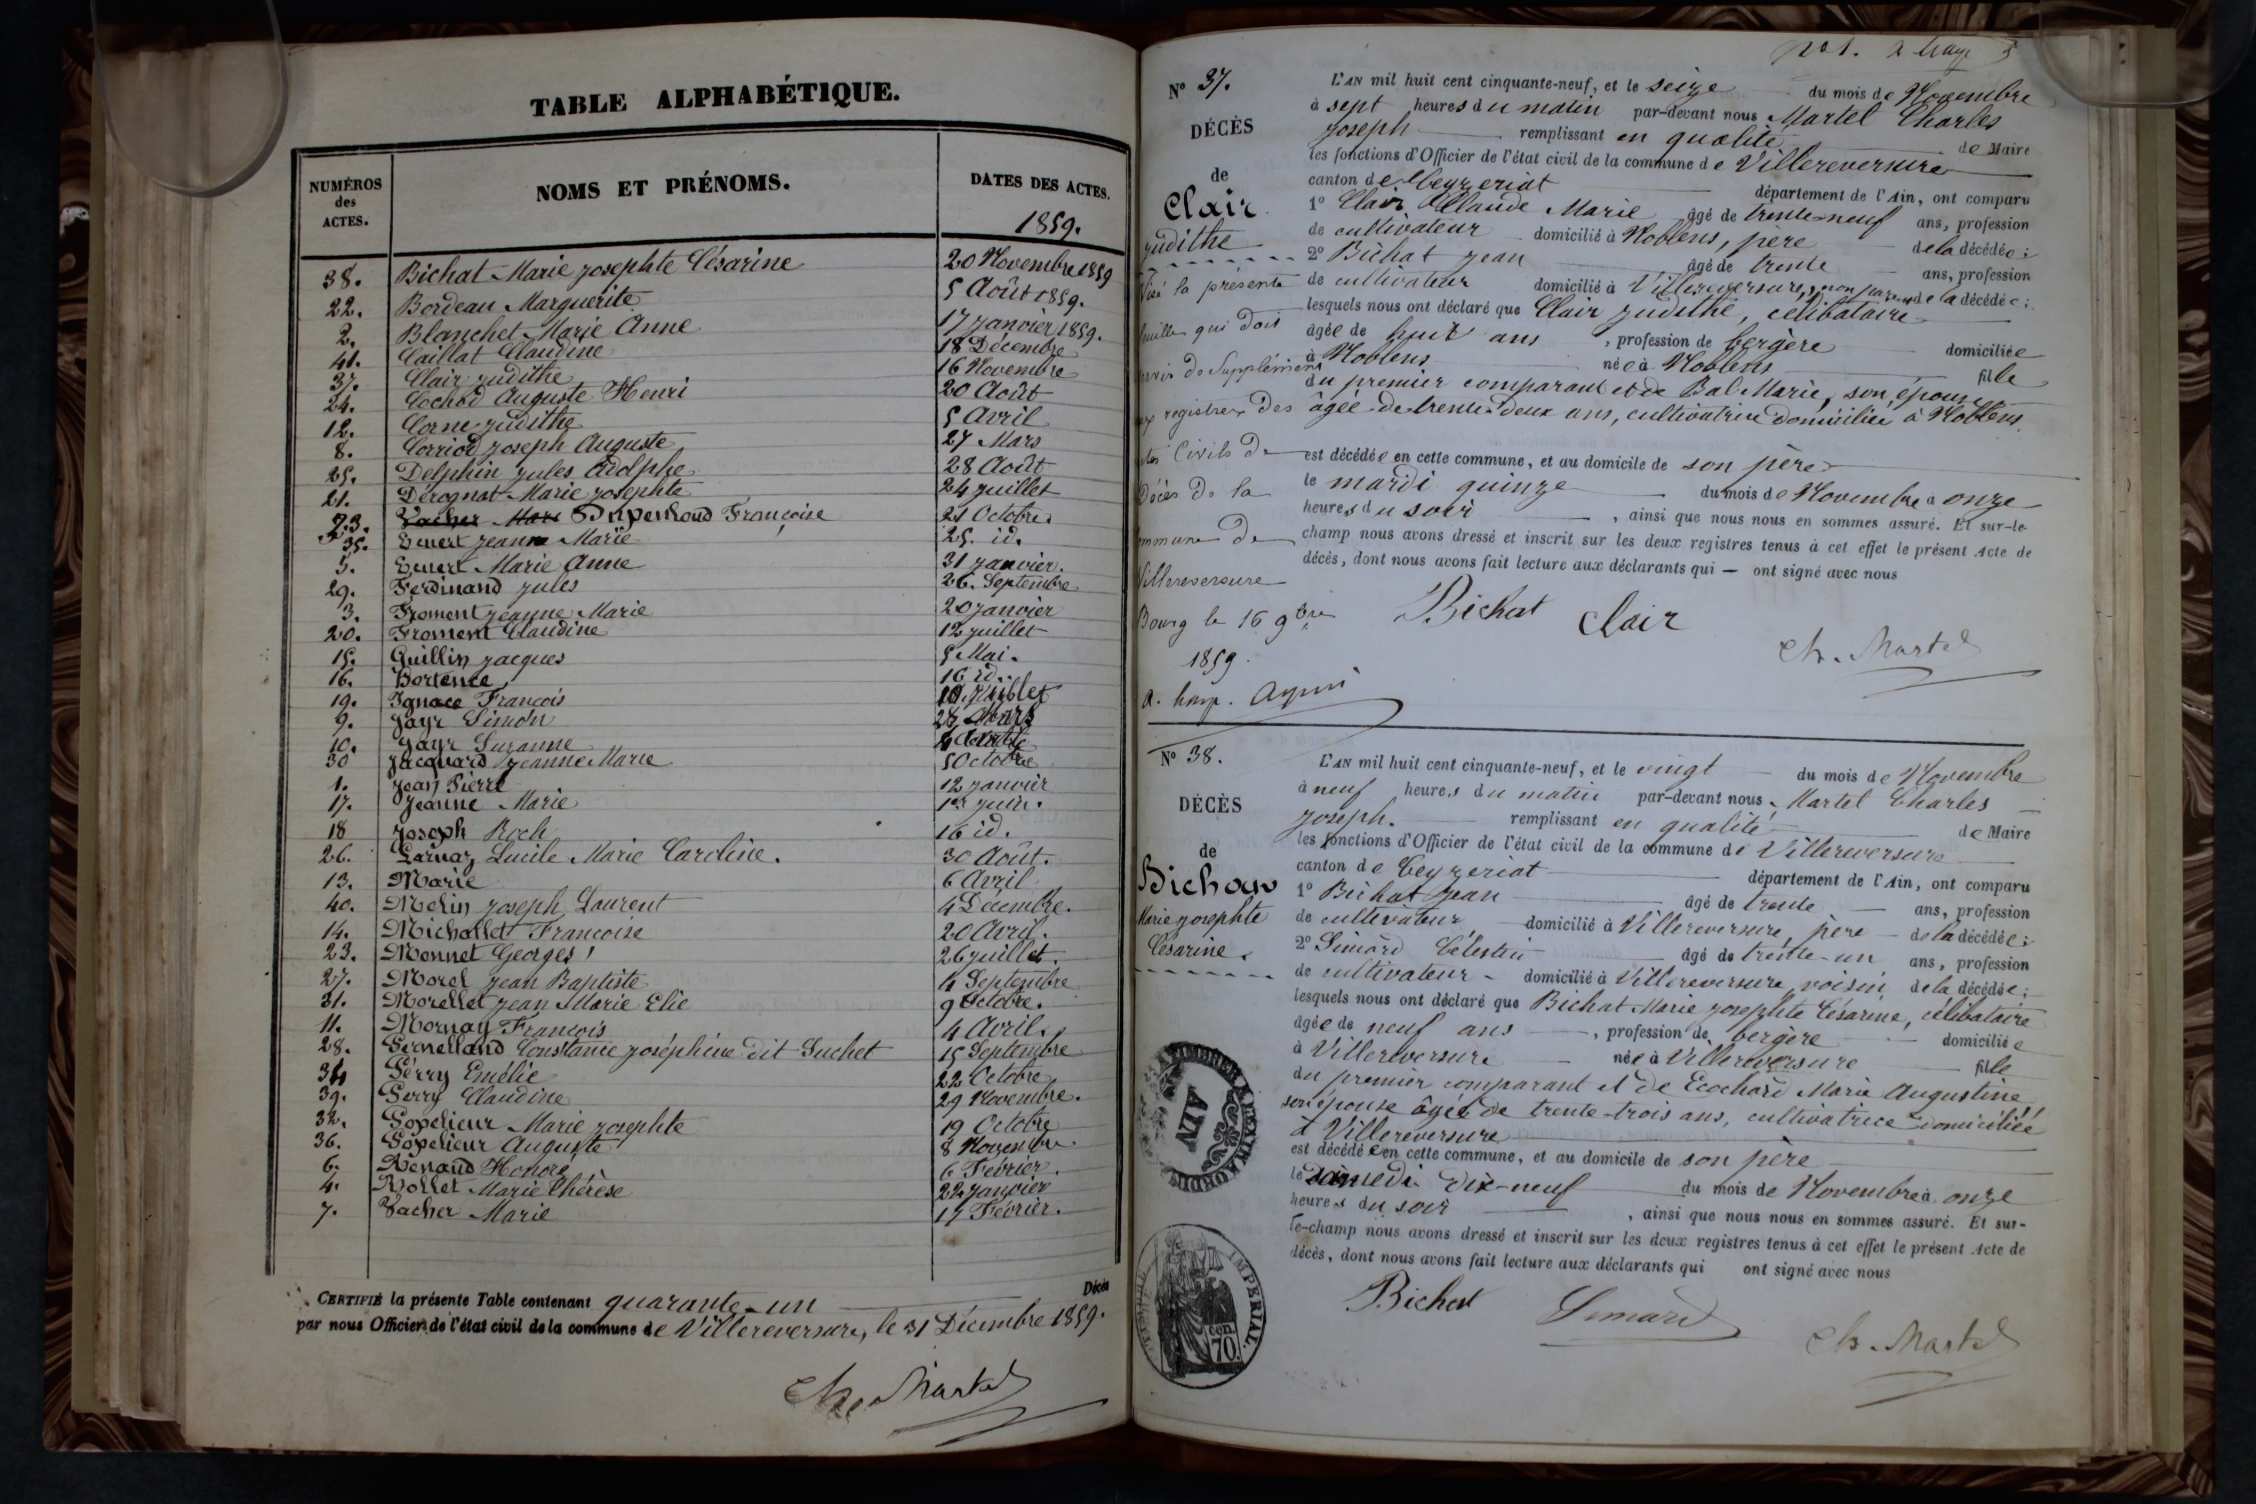 TABLE ALPHABÉTIQUE.
NUMÉROS des ACTES.
NOMS ET PRÉNOMS.
DATES DES ACTES.
1859.
38. Bichat Marie Josephte Césarine 20 Novembre 1859
22. Bordeau Marguerite 5 Août 1859.
2. Blanchet Marie Anne 17 Janvier 1859.
41. Caillat Claudine 18 Décembre
37. Clair Judithe 16 Novembre
24. Cochod Auguste Henri 20 Août
12. Corne Judithe 5 Avril
8. Corriod Joseph Auguste 27 Mars
25. Delphin Jules Adolphe 28 Août
21. Dérognat Marie Josephte 24 Juillet
33. Vacher Mar Dupenloud Françoise 21 Octobre
35. Jeanne Marie 25. id.
5. Marie Anne 31 Janvier.
29. Ferdinand Jules 26. Septembre
3. Froment Jeanne Marie 20 Janvier
20. Froment Claudine 12 Juillet
15. Guillin Jacques 5 Mai.
16. Hortence 16 id.
19. Ignace François 10 Juillet
9. Jayr Simon 28 Mars
10. Jayr Suzanne 4 Avril
30 Jacquard Jeanne Marie 5 Octobre
1. Jean Pierre 12 Janvier
17. Jeanne Marie 1er Juin.
18 Joseph Roch 16 id.
26. Larnaz Lucile Marie Caroline. 30 Août.
13. Marie 6 Avril
40. Melin Joseph Laurent 4 Décembre.
14. Michallet Francoise 20 Avril.
23. Monnet Georges 26 Juillet.
27. Morel Jean Baptiste 4 Septembre
31. Morellet Jean Marie Elie 9 Octobre.
11. Mornay François 4 Avril.
28. Pernelland Constance Joséphine dit Suchet 15 Septembre
34 Perry Emélie 22 Octobre
39. Perry Claudine 29 Novembre.
32. Popelieur Marie Josephte 19 Octobre
36. Popelieur Auguste 8 Novembre
6. Renaud Honoré 6 Février.
4. Rollet Marie Thérèse 22 Janvier
7. Vacher Marie 17 Février.
CERTIFIÉ la présente Table contenant quarante-un Décès
par nous Officier de l'état civil de la commune de Villereversure, le 31 Décembre 1859.
Ch. Martel
No 37.
DÉCÈS
de
Clair
Judithe
Visé la présente
feuille qui doit
servir de Supplément
aux registres des
actes Civils de
Décès de la
commune de
Villereversure
Bourg le 16 9bre
1859.
L'AN mil huit cent cinquante-neuf, et le seize du mois de Novembre
à sept heures du matin par-devant nous Martel Charles
Joseph remplissant en qualité de Maire
les fonctions d'Officier de l'état civil de la commune de Villereversure
canton de Ceyzeriat département de l'Ain, ont comparu
1° Clair Claude Marie âgé de trente-neuf ans, profession
de cultivateur domicilié à Noblens, père de la décédée;
2° Bichat Jean âgé de trente ans, profession
de cultivateur domicilié à Villereversure, non parent de la décédée;
lesquels nous ont déclaré que Clair Judithe, célibataire
âgée de huit ans, profession de bergère domiciliée
à Noblens née à Noblens fille
du premier comparant et de Bal Marie, son épouse
âgée de trente-deux ans, cultivatrice domiciliée à Noblens
est décédée en cette commune, et au domicile de son père
le mardi quinze du mois de Novembre à onze
heures du soir, ainsi que nous nous en sommes assuré. Et sur-le-
champ nous avons dressé et inscrit sur les deux registres tenus à cet effet le présent Acte de
décès, dont nous avons fait lecture aux déclarants qui — ont signé avec nous
Bichat Clair Ch. Martel
No 38.
DÉCÈS
de
Bichat
Marie Josephte
Césarine.
L'AN mil huit cent cinquante-neuf, et le vingt du mois de Novembre
à neuf heures du matin par-devant nous Martel Charles
Joseph. remplissant en qualité de Maire
les fonctions d'Officier de l'état civil de la commune de Villereversure
canton de Ceyzeriat département de l'Ain, ont comparu
1° Bichat Jean âgé de trente ans, profession
de cultivateur domicilié à Villereversure, père de la décédée;
2° Simard Célestin âgé de trente-un ans, profession
de cultivateur domicilié à Villereversure, voisin de la décédée;
lesquels nous ont déclaré que Bichat Marie Josephte Césarine, célibataire
âgée de neuf ans, profession de bergère domiciliée
à Villereversure née à Villereversure fille
du premier comparant et de Ecochard Marie Augustine
son épouse âgée de trente-trois ans, cultivatrice domiciliée
à Villereversure
est décédée en cette commune, et au domicile de son père
le Samedi dix-neuf du mois de Novembre à onze
heures du soir, ainsi que nous nous en sommes assuré. Et sur-
le-champ nous avons dressé et inscrit sur les deux registres tenus à cet effet le présent Acte de
décès, dont nous avons fait lecture aux déclarants qui ont signé avec nous
Bichat Simard Ch. Martel
TIMBRE EXTRAORDIN
AIN
IMPERIAL
70 cen.